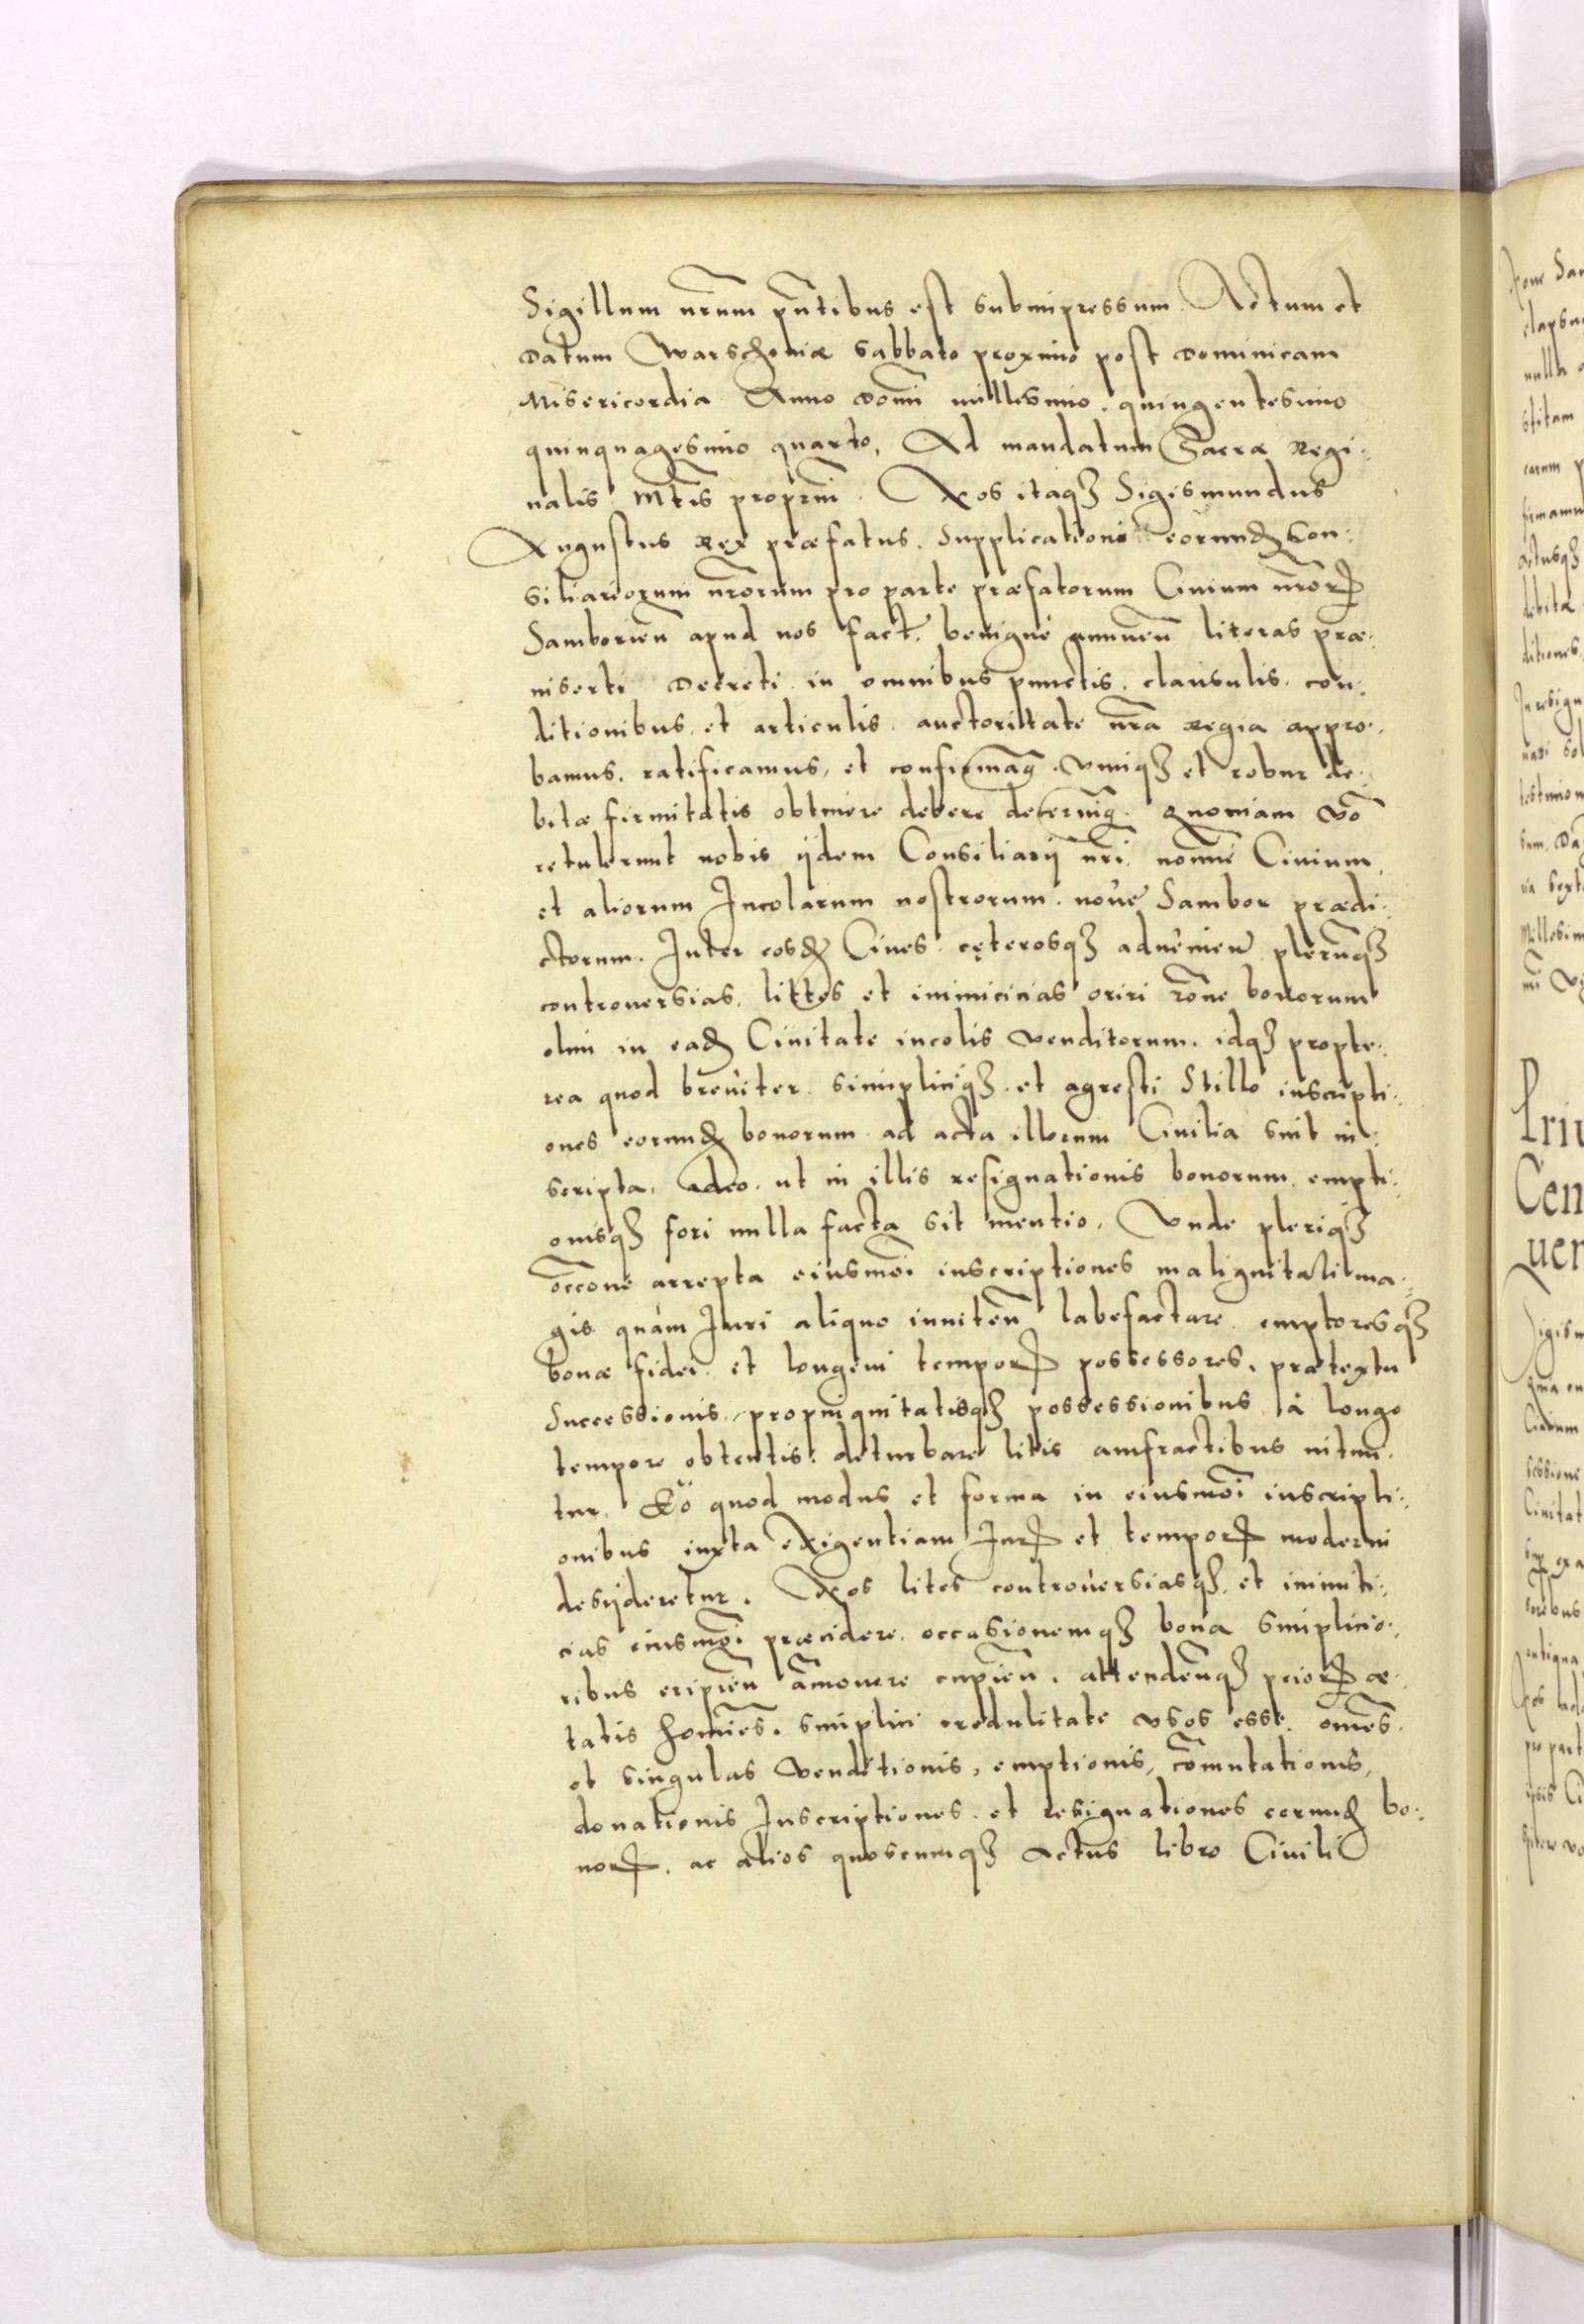 Sigillum nrum pntibus est subimpressum. Actum et
Datum Warschoviæ Sabbato proximo post Dominicam
Misericordia Anno Domi millesimo, quingentesimo
quinquagesimo quarto, Ad mandatum Sacræ Regi-
nalis Mtis proprm. Nos itaq₃ Sigismundus
Augustus Rex præfatus. Supplicationi eorund Con-
siliariorum nrorum pro parte præfatorum Civium nror
Samborien apud nos fact. benigne annuen literas præ-
inserti Decreti in omnibus punctis, clausulis, con-
ditionibus, et articulis, auctoritate nra Regia appro-
bamus, ratificamus, et confirmam. vimq₃ et robur de-
bitæ firmitatis obtinere debere decernim. Quoniam vo
retulerunt nobis ijdem Consiliarij nri, nomine Civium,
et aliorum Incolarum nostrorum, nove Sambor prædi-
ctorum. Inter eosd Cives, cęterosq₃ advenien plerunq₃
controversias, littes et inimicicias oriri rone bonorum
olim in ead Civitate incolis venditorum, idq₃ propte-
rea quod breviter, simpliciq₃, et agresti Stillo inscripti-
ones eorund bonorum ad acta illorum Civilia sint in-
scripta, adeo, ut in illis resignationis bonorum, empti-
onisq₃ fori nulla facta sit mentio, Unde pleriq₃
occone arrepta eiusmoi inscriptiones malignitati ma-
gis quàm Iuri aliquo inniten labefactare, emptoresq₃
bonæ fidei, et longevi tempor possessores, prætextu
Successionis, propinquitatisq₃ possessionibus à longo
tempore obtentis, deturbare litis amfractibus nitun-
tur. Eo quod modus et forma in eiusmoi inscripti-
onibus iuxta exigentiam Iur et tempor moderni
desyderetur. Nos lites controversiasq₃, et inimiti-
cias eiusmoi præcidere, occasionemq₃ bona simplicio-
ribus eripien amovere cupien, attendenq₃ prior æ-
tatis homines, simplici credulitate usos esse, omes
et singulas venditionis, emptionis, comutationis,
donationis Inscriptiones, et resignationes eorund bo-
nor, ac alios quoscumq₃ Actus libro Civili